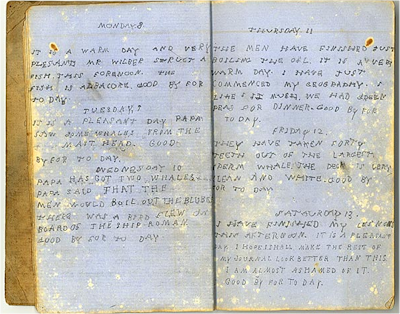 MONDAY 8
IT IS A WARM DAY AND VERY
PLESANT. MR WILBER STRUCK A
FISH THIS FORENOON. THE
FISH IS ALBACORE. GOOD BY FOR
TO DAY
TUESDAY, 9
IT IS A PLEASANT DAY PAPA
SAW SOME WHALES FROM THE
MAST HEAD. GOOD
BY FOR TO DAY.
WEDNESDAY 10
PAPA HAS GOT TWO WHALES.
PAPA SAID THAT THE
MEN WOULD BOIL OUT THE BLUBER
THERE WAS A BIRD FLEW ON
BOARD OF THE SHIP ROMAN.
GOOD BY FOR TO DAY
THURSDAY 11
THE MEN HAVE FINISHED JUST
BOILING THE OIL. IT IS A VERY
WARM DAY. I HAVE JUST
COMMENCED MY GEOGRAPHY. I
LIKE IT MUCH, WE HAD
PEAS FOR DINNER. GOOD BY FOR
TO DAY.
FRIDAY 12,
THEY HAVE TAKEN FORTY
TEETH OUT OF THE LARGEST
SPERM WHALE. THE DECK IS VERY
CLEAN AND WHITE. GOOD BY
FOR TO DAY
SATAURDAD 13.
I HAVE FINISHED MY LESSONS
THIS AFTERNOON. IT IS A PLEASANT
DAY. I HOPE I SHALL MAKE THE REST OF
MY JOURNAL LOOK BETTER THAN THIS
I AM ALMOST ASHAMED OF IT.
GOOD BY FOR TO DAY.